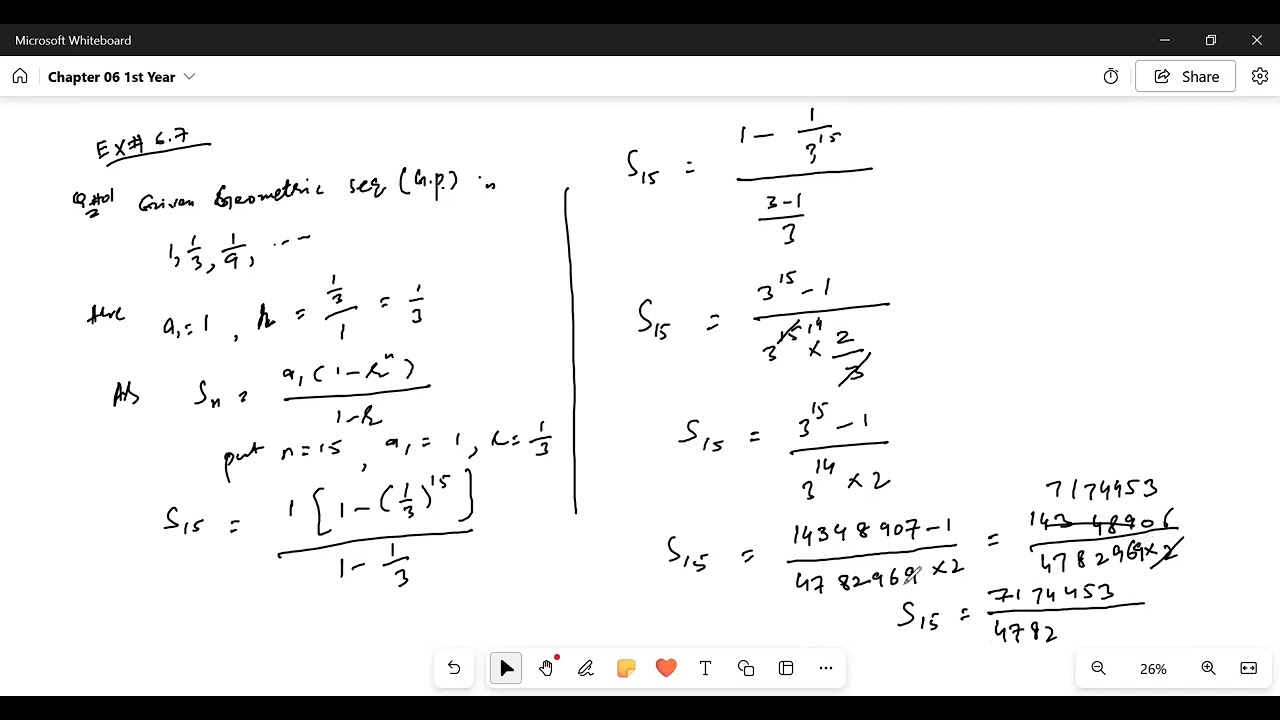 Microsoft Whiteboard
Chapter 06 1st Year
Share
Ex# 6.7
Q#01 Given Geometric seq (G.p.) is
2
1, 1/3, 1/9, ...
Here a₁ = 1, r = (1/3)/1 = 1/3
As Sₙ = a₁(1-rⁿ)/(1-r)
put n = 15, a₁ = 1, r = 1/3
S₁₅ = 1[1-(1/3)¹⁵]/(1-1/3)
S₁₅ = (1 - 1/3¹⁵)/((3-1)/3)
S₁₅ = (3¹⁵-1)/(3¹⁵ ¹⁴ × 2/3)
S₁₅ = (3¹⁵-1)/(3¹⁴ × 2)
7174453
S₁₅ = (14348907-1)/(4782969 × 2) = 14348906/(4782969 × 2)
S₁₅ = 7174453/4782
26%